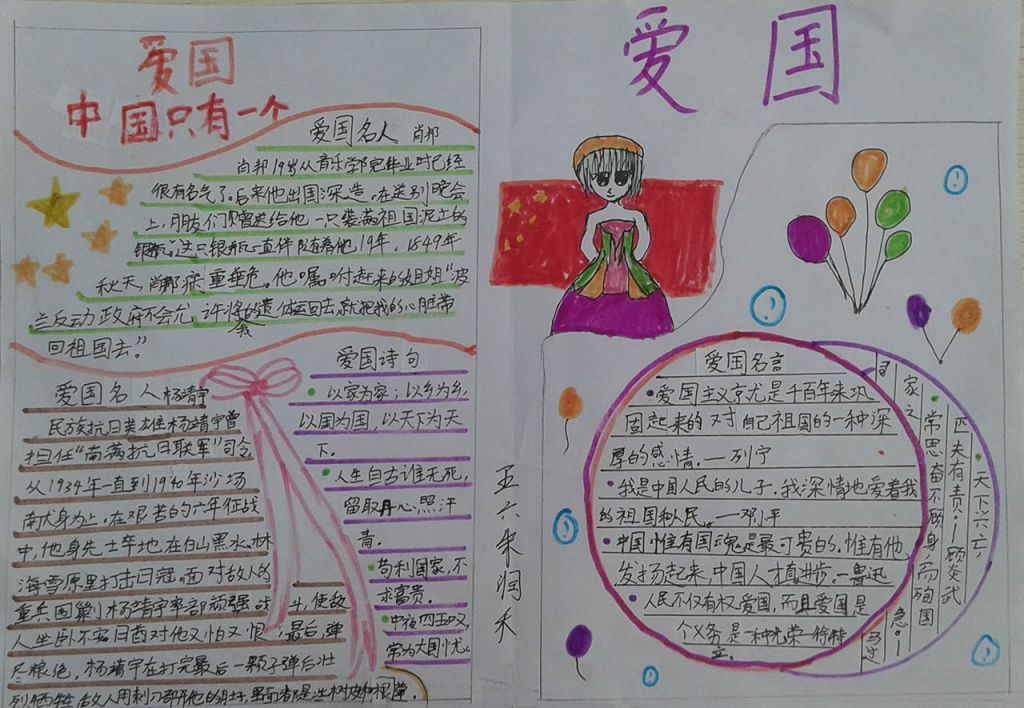 爱国
中国只有一个
爱国名人 肖邦
肖邦19岁从音乐学院毕业时已经
很有名气了。后来他出国深造。在送别晚会
上,朋友们赠送给他一只装满祖国泥土的
银瓶。这只银瓶一直伴随着他,19年,1849年
秋天,肖邦病重垂危。他嘱咐赶来的姐姐"波
兰反动政府不会允许将的遗体运回去,就把我的心脏带
回祖国去。"
爱国名人杨靖宇
民族抗日英雄杨靖宇曾
担任"南满抗日联军"司令
从1934年一直到1940年沙场
献身为上。在艰苦的六年征战
中,他身先士卒地在白山黑水、林
海雪原里打击日冠。面对敌人的
重兵围剿杨靖宇率部顽强战斗,使敌
人坐卧不安日酋对他又怕又恨,最后,弹
尽粮绝,杨靖宇在打完最后一颗子弹后壮
烈牺牲 敌人用刺刀部开他的肚子,里面都是些树皮和棉
爱国诗句
以家为家;以乡为乡,
以国为国,以天下为天
下。
人生自古谁无死,
留取丹心照汗
青。
苟利国家,不
求富贵。
中夜四五叹,
常为大国忧。
五六朱润禾
爱国
爱国名言
爱国主义京尤是千百年来巩
固起来的对自己祖国的一种深
厚的感情。—列宁
我是中国人民的儿子。我深情地爱着我
的祖国和人民。—邓小平
中国惟有国魂是最可贵的。惟有他
发扬起来,中国人才有真进步。—鲁迅
人民不仅有权爱国,而且爱国是
个义务是一种光荣—
天下兴亡,
匹夫有责!—顾炎武
常思奋不顾身,而殉国
家之
急。—
司
马迁